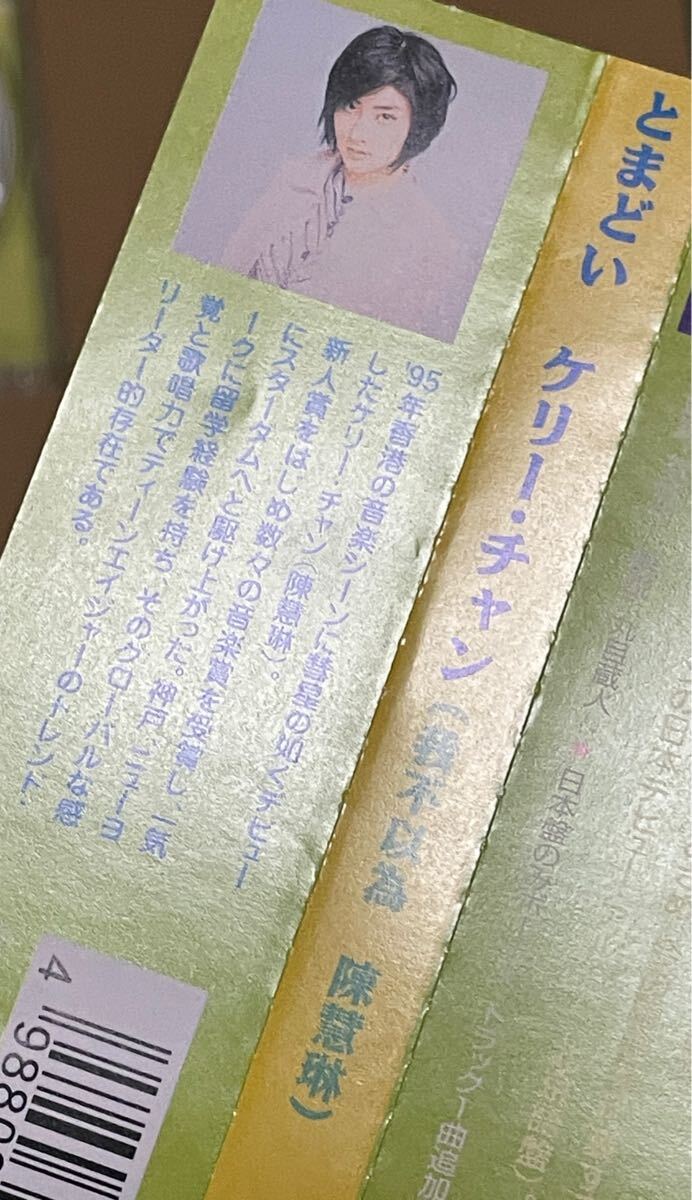 とまどい ケリー・チャン(我不以為 陳慧琳)
'95年香港の音楽シーンに彗星の如くデビュー
したケリー・チャン(陳慧琳)。
新人賞をはじめ数々の音楽賞を受賞し、一気
にスターダムへと駆け上がった。神戸、ニューヨ
ークに留学経験を持ち、そのグローバルな感
覚と歌唱力でティーンエイジャーのトレンド・
リーダー的存在である。
日本デビュー
日本
トラック1曲追加
4 988